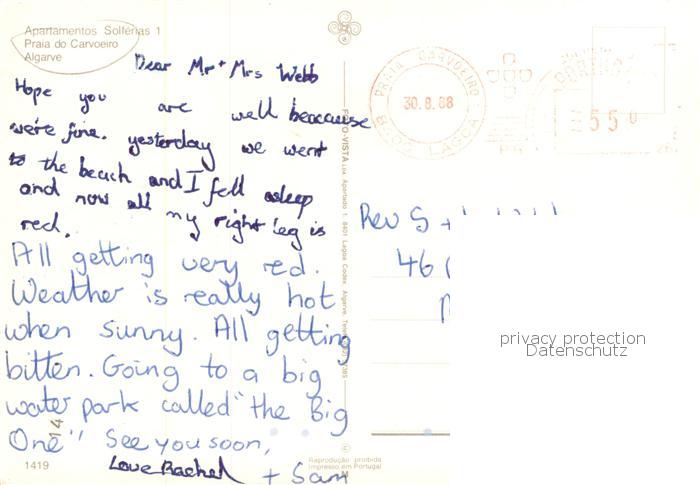 Apartamentos Solférias 1
Praia do Carvoeiro
Algarve
Dear Mr + Mrs Webb
Hope you are well beacause
we're fine. yesterday we went
to the beach and I fell asleep
and now all my right leg is
red.
All getting very red.
Weather is really hot
when sunny. All getting
bitten. Going to a big
water park called "the Big
One" See you soon,
Love Rachel + Sam
14
1419
Reprodução proibida
Impresso em Portugal
PRAIA CARVOEIRO
30.8.88
LAGOA
550
Rev S +
46
privacy protection
Datenschutz